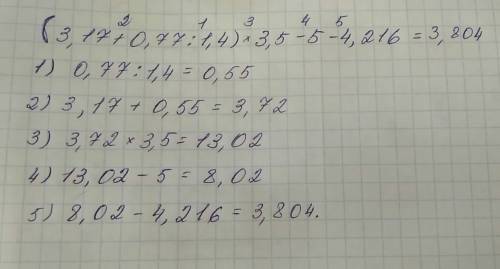 (3,17+0,77:1,4)×3,5-5-4,216=3,804
2 1 3 4 5
1) 0,77:1,4=0,55
2) 3,17+0,55=3,72
3) 3,72×3,5=13,02
4) 13,02-5=8,02
5) 8,02-4,216=3,804.